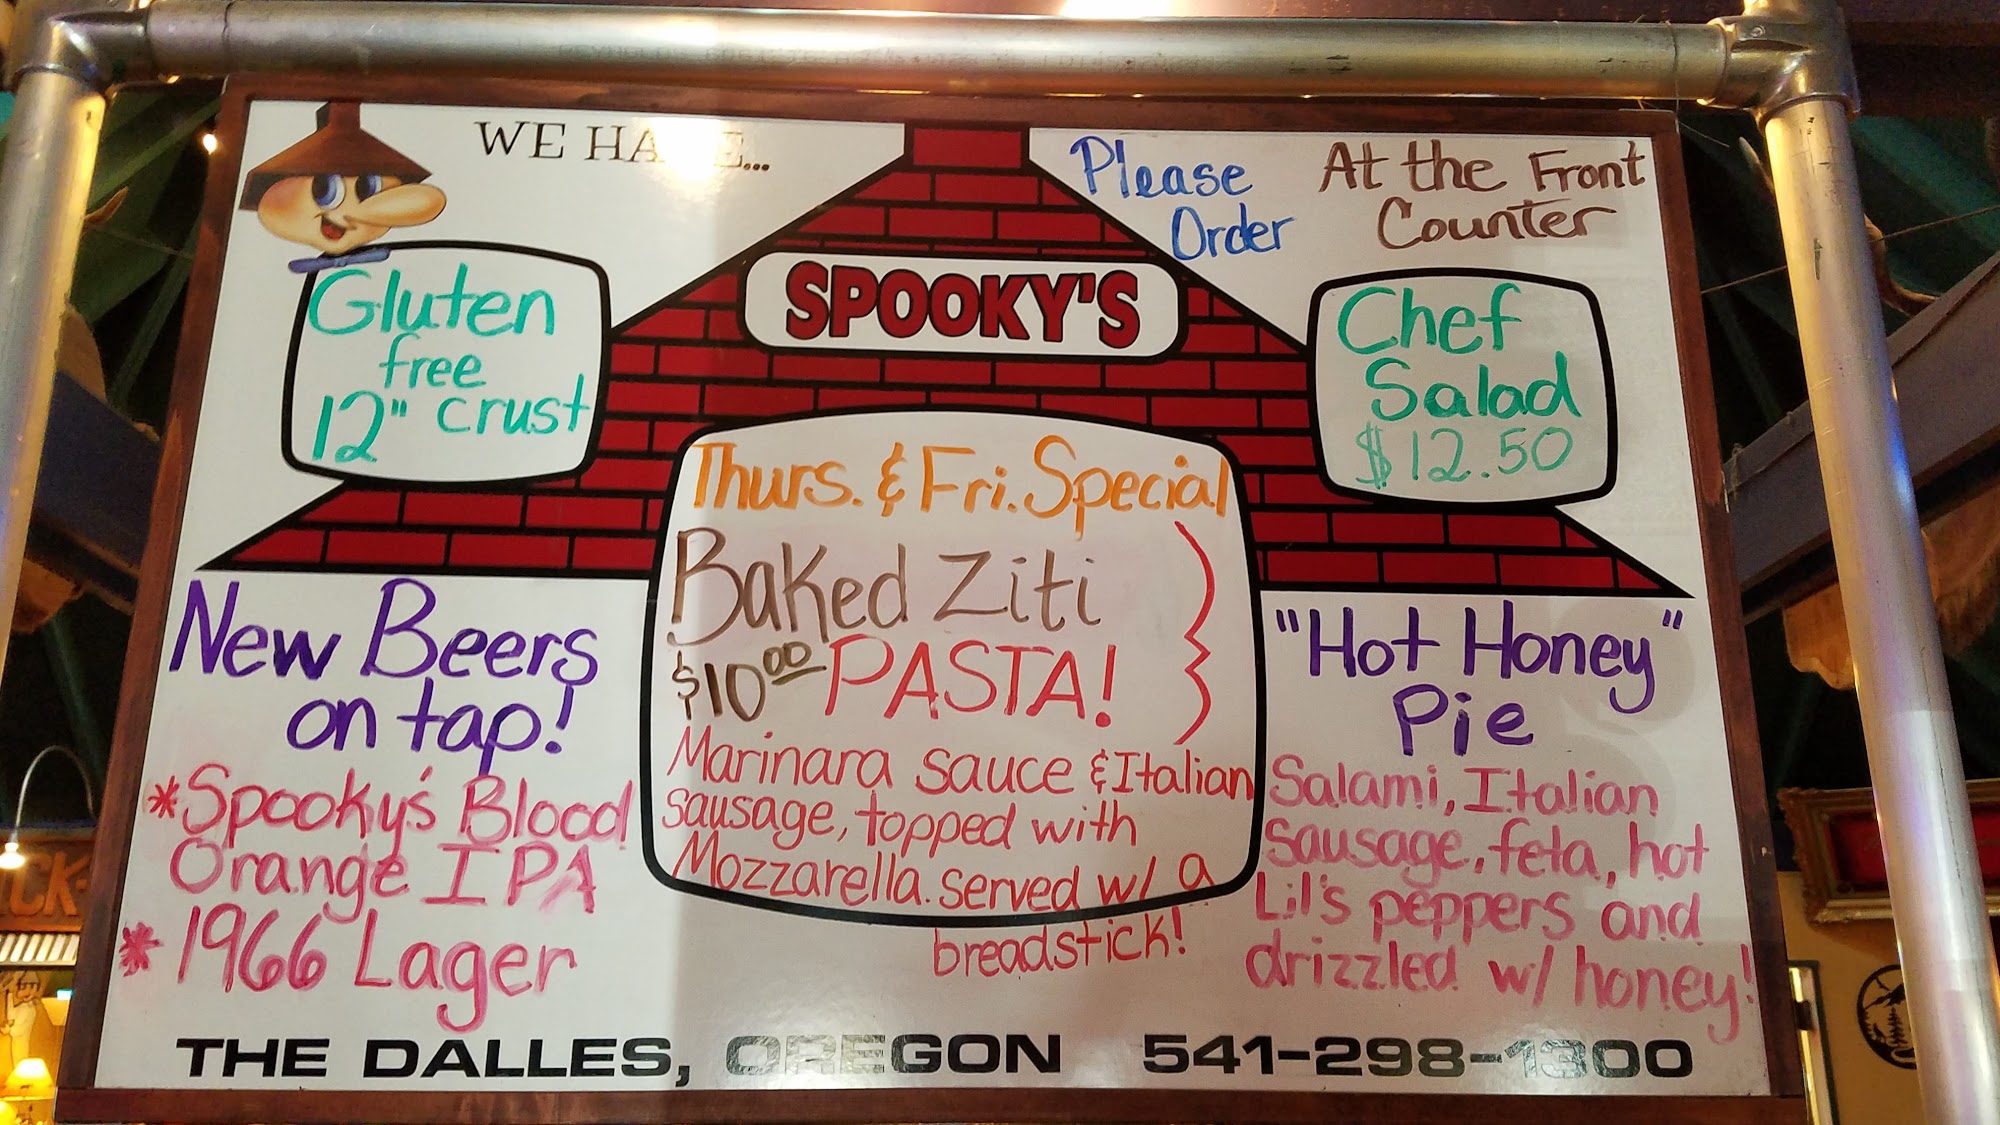 WE HAVE...
Please Order
At the Front Counter
SPOOKY'S
Gluten
free
12" crust
Chef
Salad
$12.50
Thurs. & Fri. Special
Baked Ziti
$10.00 PASTA!
Marinara sauce & Italian
sausage, topped with
Mozzarella. served w/ a
breadstick!
New Beers
on tap!
*Spooky's Blood
Orange IPA
* 1966 Lager
"Hot Honey"
Pie
Salami, Italian
sausage, feta, hot
Lil's peppers and
drizzled w/ honey!
THE DALLES, OREGON 541-298-1300